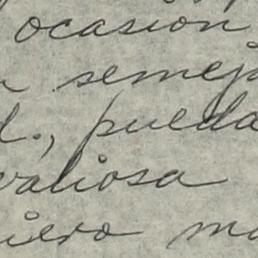 ocasión
semej
d., pueda
valiosa
iero